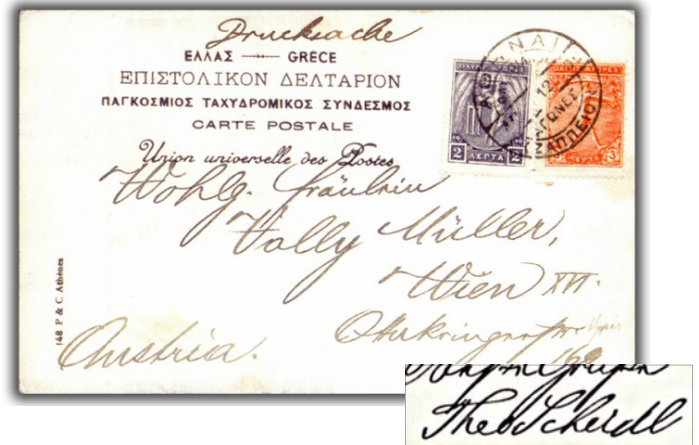 Drucksache
ΕΛΛΑΣ — GRÈCE
ΕΠΙΣΤΟΛΙΚΟΝ ΔΕΛΤΑΡΙΟΝ
ΠΑΓΚΟΣΜΙΟΣ ΤΑΧΥΔΡΟΜΙΚΟΣ ΣΥΝΔΕΣΜΟΣ
CARTE POSTALE
Union universelle des Postes
2 ΛΕΠΤΑ 2
ΖΑΠΠΕΙΟΝ
Wohlg. Fräulein
Vally Müller,
Wien XVI.
Ottakringerstrasse
Austria.
148 P & C Athènes
Theo Scheidl